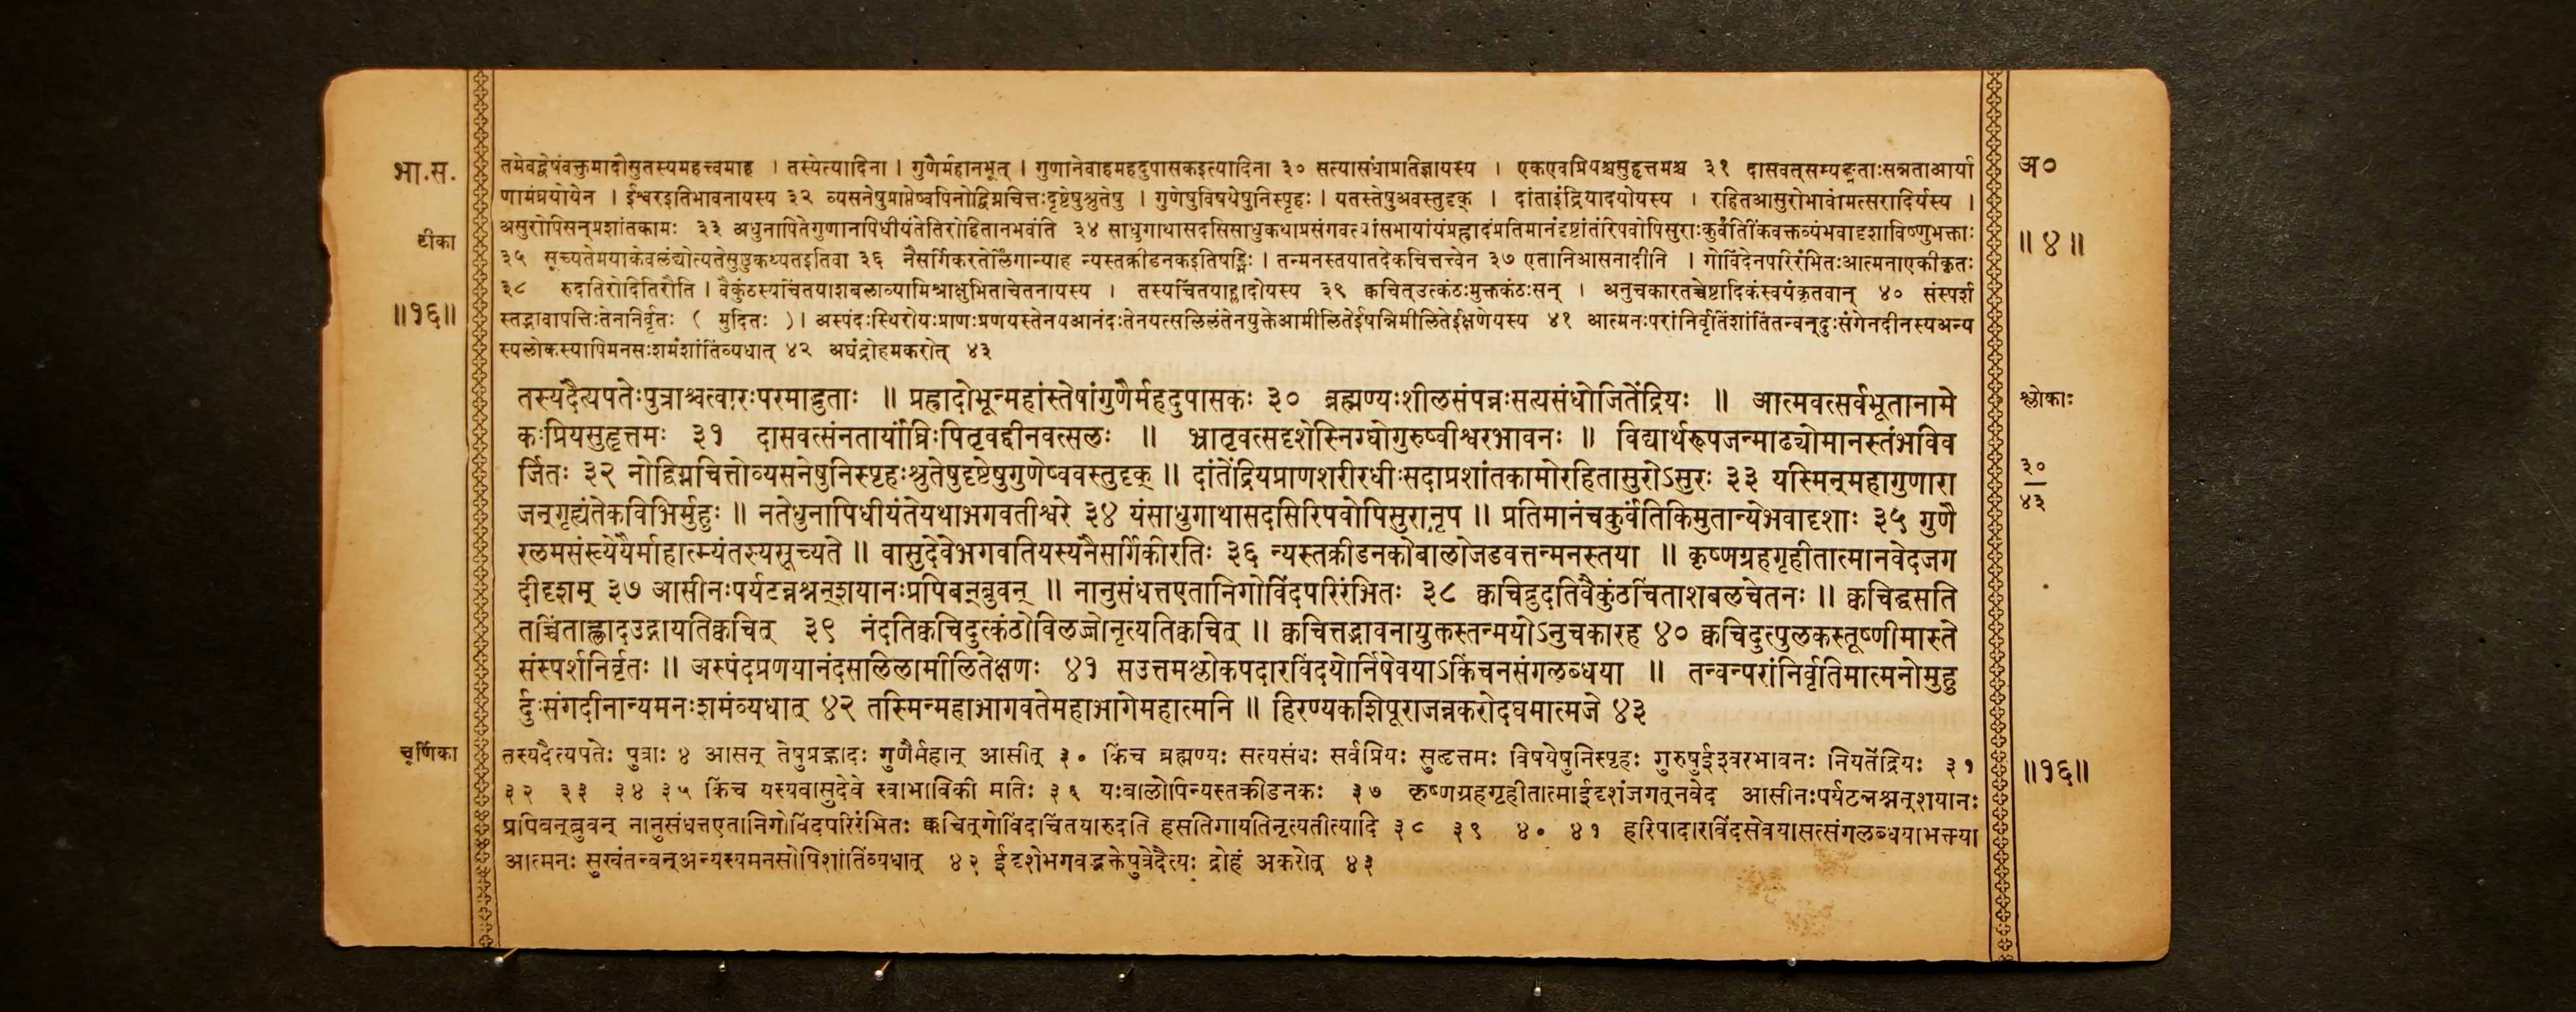 भा.स.
तमेवद्वेषंवक्तुमादौसुतस्यमहत्त्वमाह । तस्येत्यादिना । गुणैर्महानभूत् । गुणानेवाहमहदुपासकइत्यादिना ३० सत्यासंधाप्रतिज्ञायस्य । एकएवप्रियश्चसुहृत्तमश्च ३१ दासवत्सम्यङ्नताःसन्नताआर्या
अ०
णामंघ्रयोयेन । ईश्वरइतिभावनायस्य ३२ व्यसनेषुप्राप्तेष्वपिनोद्विग्नचित्तःदृष्टेषुश्रुतेषु । गुणेषुविषयेषुनिस्पृहः । यतस्तेषुअवस्तुदृक् । दांताइंद्रियादयोयस्य । रहितआसुरोभावोमत्सरादिर्यस्य ।
टीका
असुरोपिसन्प्रशांतकामः ३३ अधुनापितेगुणानपिधीयंतेतिरोहितानभवंति ३४ साधुगाथासदसिसाधुकथाप्रसंगवत्यांसभायांयंप्रह्रादंप्रतिमानंदृष्टांतंरिपवोपिसुराःकुर्वंतिकिंवक्तव्यंभवादृशाविष्णुभक्ताः
॥ ४ ॥
३५ सूच्यतेमयाकेवलंद्योत्यतेसुष्ठुकथ्यतइतिवा ३६ नैसर्गिकरतेर्लिंगान्याह न्यस्तक्रीडनकइतिषड्भिः । तन्मनस्तयातदेकचित्तत्त्वेन ३७ एतानिआसनादीनि । गोविंदेनपरिरंभितःआत्मनाएकीकृतः
३८ रुदतिरोदितिरौति । वैकुंठस्यचिंतयाशबलाव्यामिश्राक्षुभिताचेतनायस्य । तस्यचिंतयाह्लादोयस्य ३९ क्वचित्उत्कंठःमुक्तकंठःसन् । अनुचकारतच्चेष्टादिकंस्वयंकृतवान् ४० संस्पर्श
॥१६॥
स्तद्भावापत्तिःतेनानिर्वृतः ( मुदितः )। अस्पंदःस्थिरोयःप्राणःप्रणयस्तेनयआनंदःतेनयत्सलिलंतेनयुक्तेआमीलितेईषन्निमीलितेईक्षणेयस्य ४१ आत्मनःपरांनिर्वृतिंशांतिंतन्वन्दुःसंगेनदीनस्यअन्य
स्यलोकस्यापिमनसःशमंशांतिंव्यधात् ४२ अघंद्रोहमकरोत् ४३
तस्यदैत्यपतेःपुत्राश्चत्वारःपरमाद्भुताः ॥ प्रह्रादोभून्महांस्तेषांगुणैर्महदुपासकः ३० ब्रह्मण्यःशीलसंपन्नःसत्यसंधोजितेंद्रियः ॥ आत्मवत्सर्वभूतानामे
श्लोकाः
कःप्रियसुहृत्तमः ३१ दासवत्संनतार्यांघ्रिःपितृवद्दीनवत्सलः ॥ भ्रातृवत्सदृशेस्निग्धोगुरुष्वीश्वरभावनः ॥ विद्यार्थरूपजन्माढ्योमानस्तंभविव
र्जितः ३२ नोद्विग्नचित्तोव्यसनेषुनिस्पृहःश्रुतेषुदृष्टेषुगुणेष्ववस्तुदृक् ॥ दांतेंद्रियप्राणशरीरधीःसदाप्रशांतकामोरहितासुरोऽसुरः ३३ यस्मिन्महागुणारा
३०
४३
जन्गृह्यंतेकविभिर्मुहुः ॥ नतेधुनापिधीयंतेयथाभगवतीश्वरे ३४ यंसाधुगाथासदसिरिपवोपिसुरानृप ॥ प्रतिमानंचकुर्वंतिकिमुतान्येभवादृशाः ३५ गुणै
रलमसंख्येयैर्माहात्म्यंतस्यसूच्यते ॥ वासुदेवेभगवतियस्यनैसर्गिकीरतिः ३६ न्यस्तक्रीडनकोबालोजडवत्तन्मनस्तया ॥ कृष्णग्रहगृहीतात्मानवेदजग
दीदृशम् ३७ आसीनःपर्यटन्नश्नन्शयानःप्रपिबन्ब्रुवन् ॥ नानुसंधत्तएतानिगोविंदपरिरंभितः ३८ क्वचिद्रुदतिवैकुंठचिंताशबलचेतनः ॥ क्वचिद्धसति
तच्चिंताह्लादउद्गायतिक्वचित् ३९ नंदतिक्वचिदुत्कंठोविलज्जोनृत्यतिक्वचित् ॥ क्वचित्तद्भावनायुक्तस्तन्मयोऽनुचकारह ४० क्वचिदुत्पुलकस्तूष्णीमास्ते
संस्पर्शनिर्वृतः ॥ अस्पंदप्रणयानंदसलिलामीलितेक्षणः ४१ सउत्तमश्लोकपदारविंदयोर्निषेवयाऽकिंचनसंगलब्धया ॥ तन्वन्परांनिर्वृतिमात्मनोमुहु
र्दुःसंगदीनान्यमनःशमंव्यधात् ४२ तस्मिन्महाभागवतेमहाभागेमहात्मनि ॥ हिरण्यकशिपूराजन्नकरोदघमात्मजे ४३
चूर्णिका
तस्यदैत्यपतेः पुत्राः ४ आसन् तेषुप्रह्लादः गुणैर्महान् आसीत् ३० किंच ब्रह्मण्यः सत्यसंधः सर्वप्रियः सुहृत्तमः विषयेषुनिस्पृहः गुरुषुईश्वरभावनः नियतेंद्रियः ३१
॥१६॥
३२ ३३ ३४ ३५ किंच यस्यवासुदेवे स्वाभाविकी मतिः ३६ यःबालोपिन्यस्तक्रीडनकः ३७ कृष्णग्रहगृहीतात्माईदृशंजगत्नवेद आसीनःपर्यटन्नश्नन्शयानः
प्रपिबन्ब्रुवन् नानुसंधत्तएतानिगोविंदपरिरंभितः क्वचित्गोविंदचिंतयारुदति हसतिगायतिनृत्यतीत्यादि ३८ ३९ ४० ४१ हरिपादारविंदसेवयासत्संगलब्धयाभक्त्या
आत्मनः सुखंतन्वन्अन्यस्यमनसोपिशांतिंव्यधात् ४२ ईदृशेभगवद्भक्तेपुत्रेदैत्यः द्रोहं अकरोत् ४३